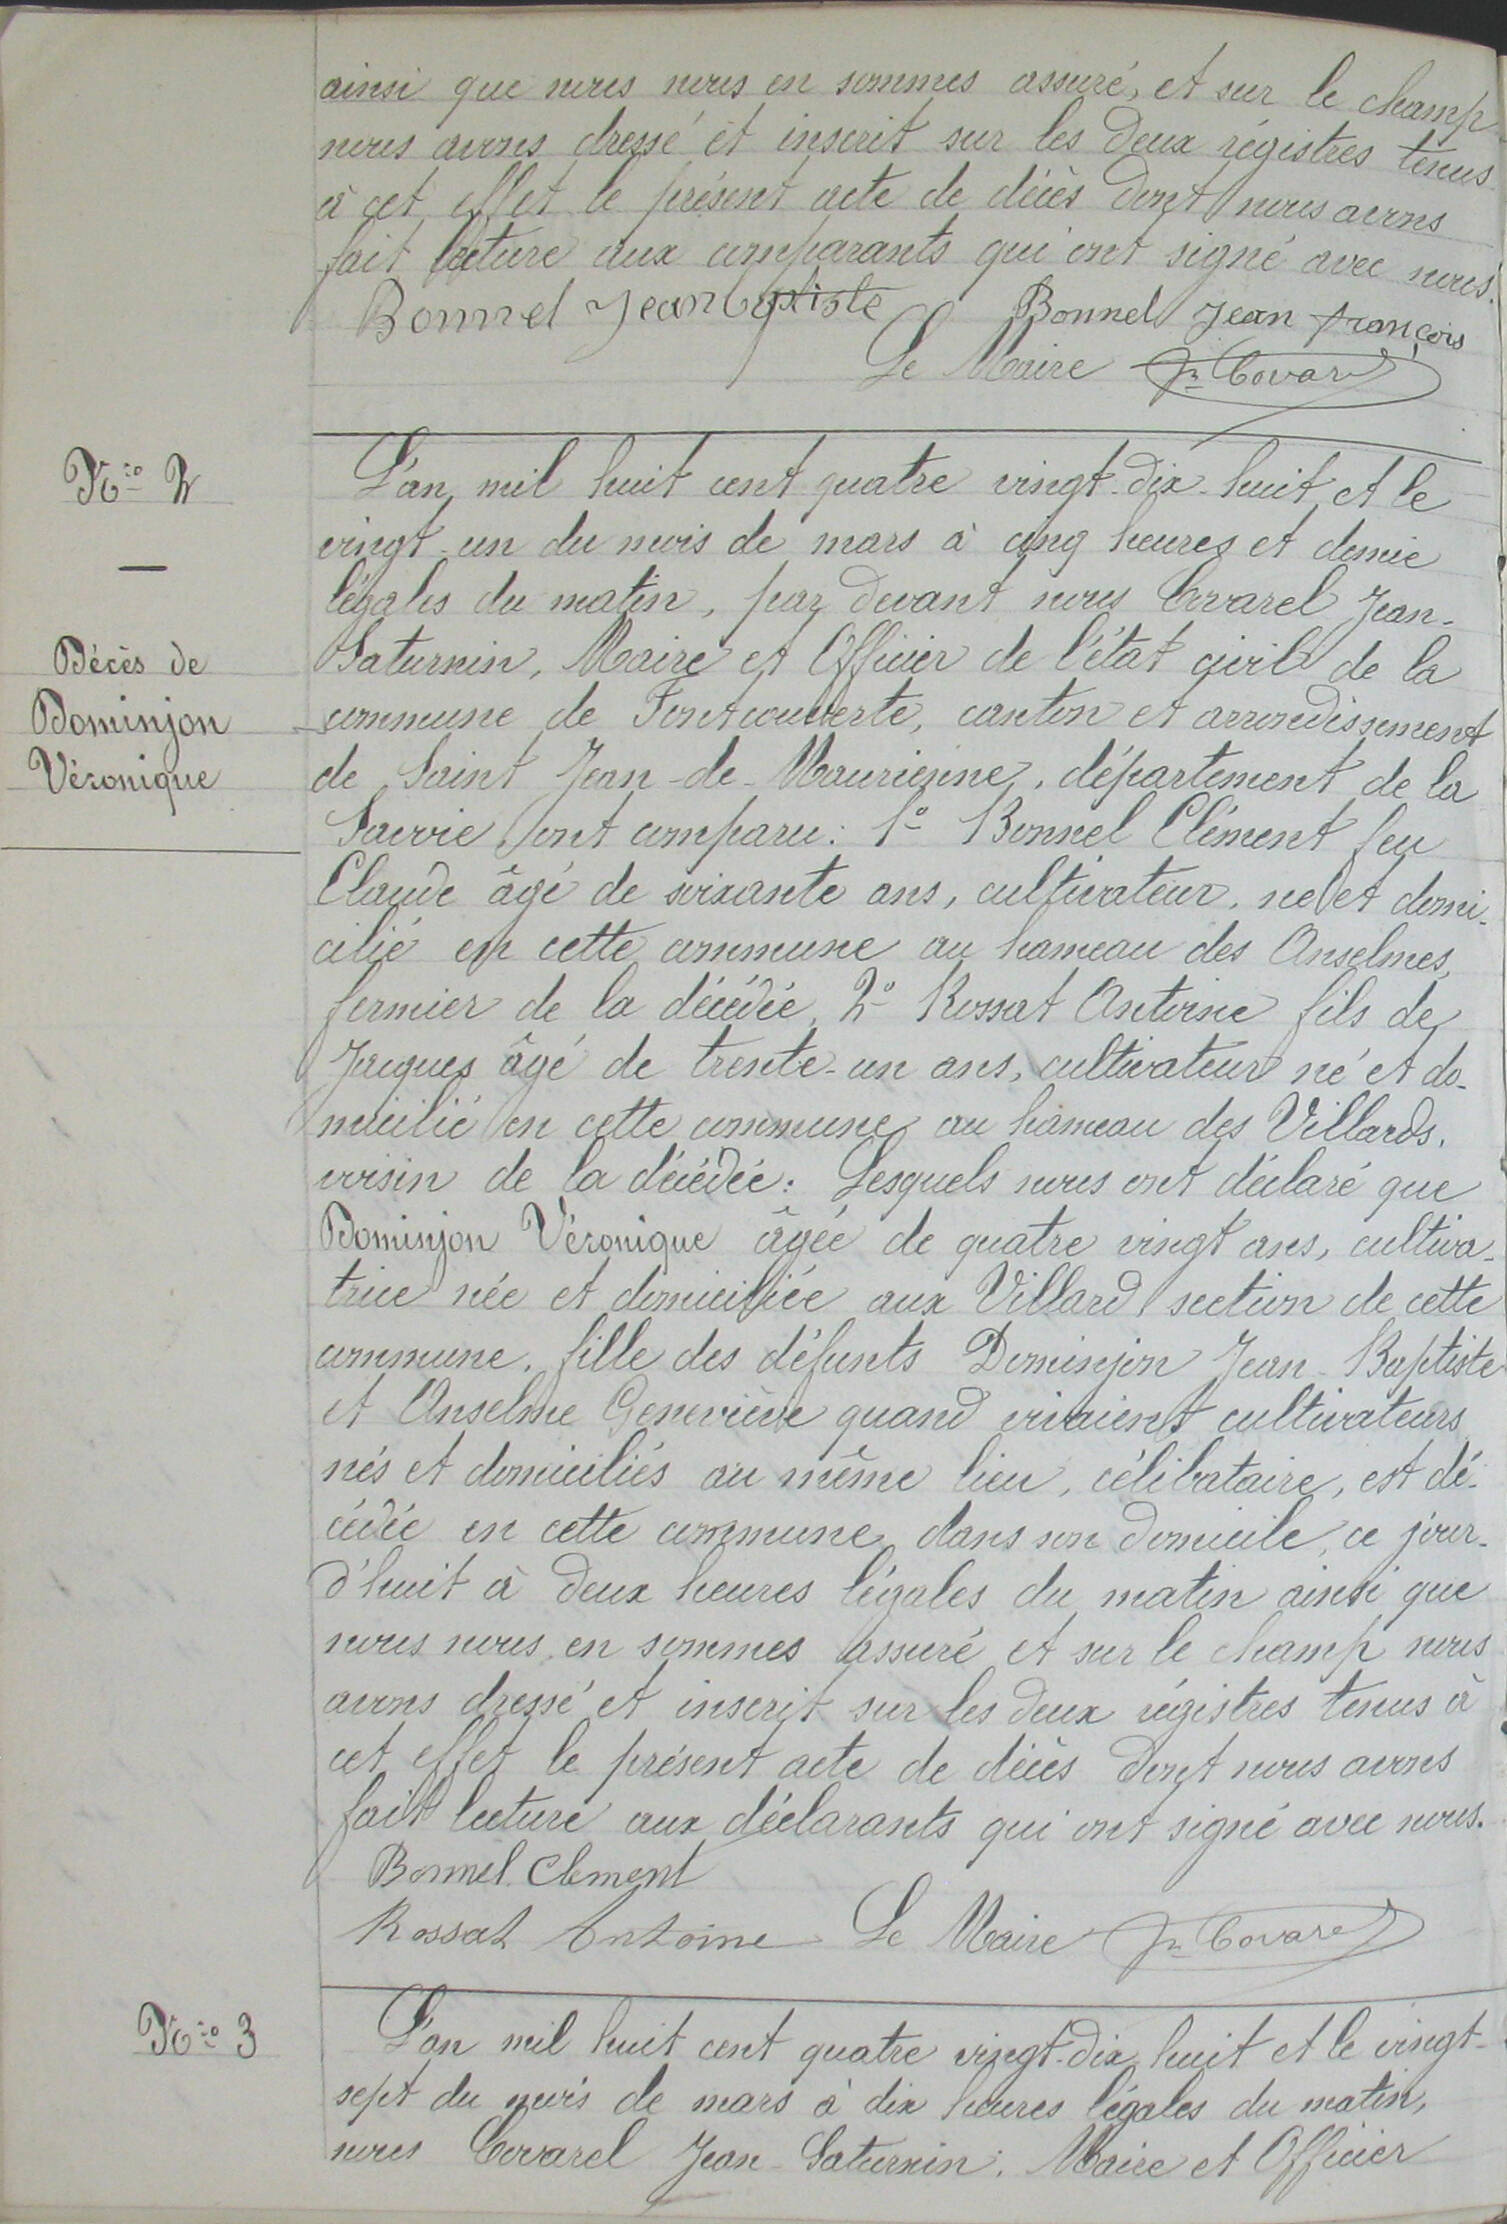 ainsi que nous nous en sommes assuré, et sur le champ
nous avons dressé et inscrit sur les deux régistres tenus
à cet effet le présent acte de décès dont nous avons
fait lecture aux comparants qui ont signé avec nous.
Bonnel Jean baptiste Bonnel Jean françois
Le Maire Jn Covarel
N:o 2
L'an mil huit cent quatre vingt-dix-huit et le
vingt-un du mois de mars à cinq heures et demie
légales du matin, par devant nous Covarel Jean-
Saturnin, Maire et Officier de l'état civil de la
commune de Fontcouverte, canton et arrondissement
de Saint Jean-de-Maurienne, département de la
Savoie ont comparu: 1o Bonnel Clément feu
Claude âgé de soixante ans, cultivateur, né et domi-
cilié en cette commune au hameau des Anselmes,
fermier de la décédée, 2o Rossat Antoine fils de
Jacques âgé de trente-un ans, cultivateur né et do-
micilié en cette commune au hameau des Villards,
voisin de la décédée: Lesquels nous ont déclaré que
Dominjon Véronique âgée de quatre vingt ans, cultiva-
trice née et domiciliée aux Villard section de cette
commune, fille des défunts Dominjon Jean-Baptiste
et Anselme Geneviève quand vivaient cultivateurs
nés et domiciliés au même lieu, célibataire, est dé-
cédée en cette commune dans son domicile, ce jour-
d'huit à deux heures légales du matin ainsi que
nous nous en sommes assuré et sur le champ nous
avons dressé et inscrit sur les deux régistres tenus à
cet effet le présent acte de décès dont nous avons
fait lecture aux déclarants qui ont signé avec nous.
Bonnel Clement
Rossat Antoine Le Maire Jn Covarel
Décès de
Dominjon
Véronique
N:o 3
L'an mil huit cent quatre vingt-dix huit et le vingt-
sept du mois de mars à dix heures légales du matin,
nous Covarel Jean-Saturnin, Maire et Officier